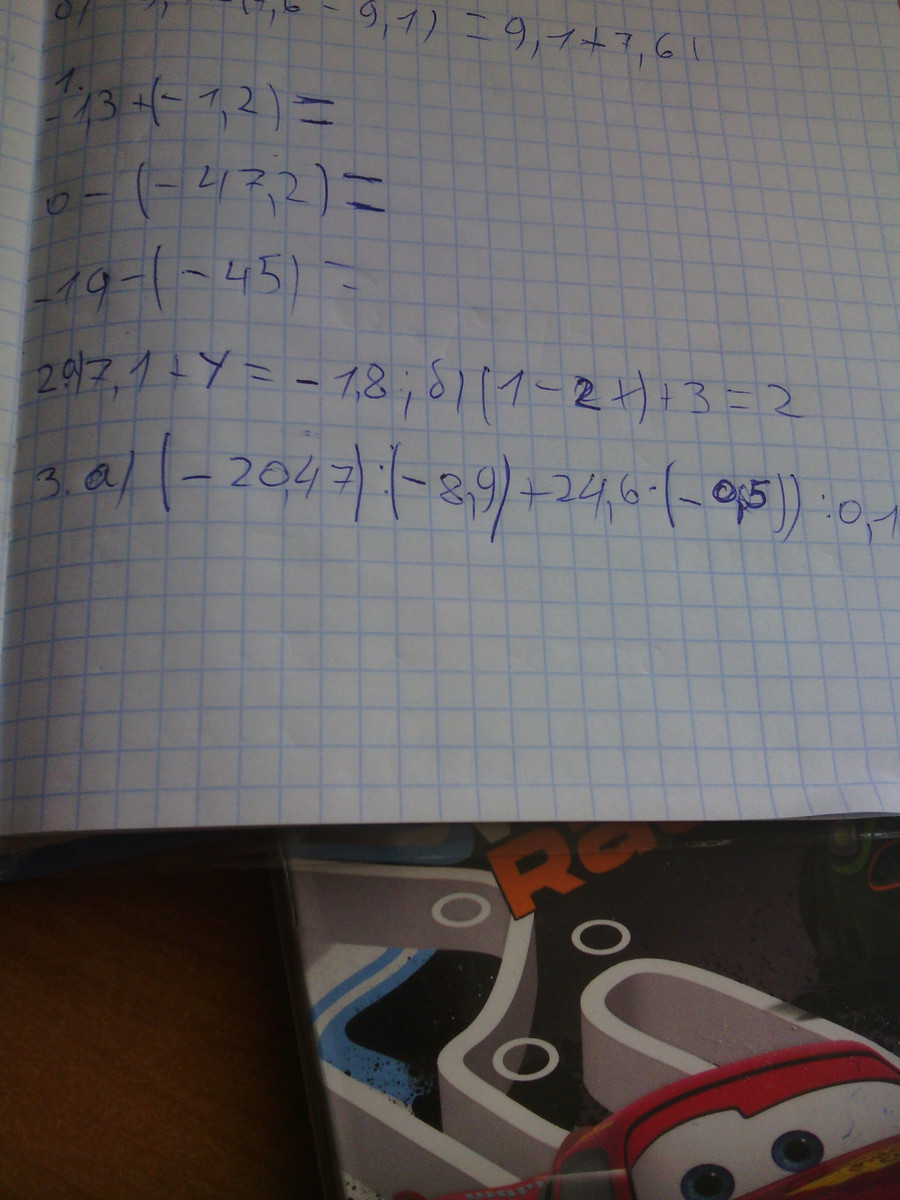 9,1) = 9,1+7,6
1.
-1,3+(-1,2)=
0-(-47,2)=
-19-(-45)=
2.а)7,1+y=-1,8; б) (1-2x)+3=2
3. а) (-20,47):(-8,9)+24,6·(-0,5)):0,1
Ra